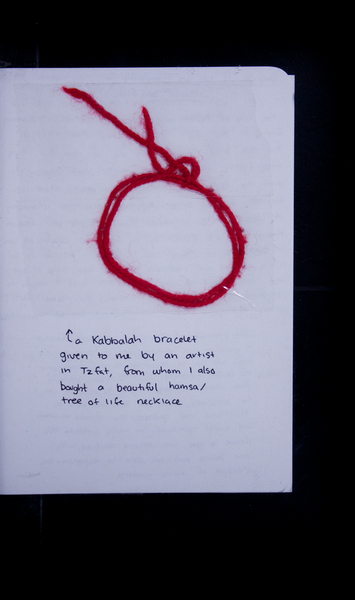 ↑a Kabbalah bracelet
given to me by an artist
in Tzfat, from whom I also
bought a beautiful hamsa/
tree of life necklace